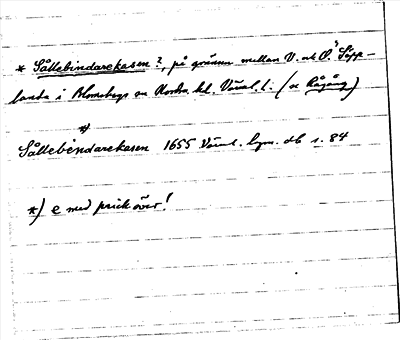 * Sållebindarekasen?, på gränsen mellan V. och Ö. Sopp-
landa i Blomskogs sn Nordm. hd. Värml. l. (se Rågång)
Sållebindarekasen *) 1655 Värml. lysn. db s. 84
*) e med prick över!